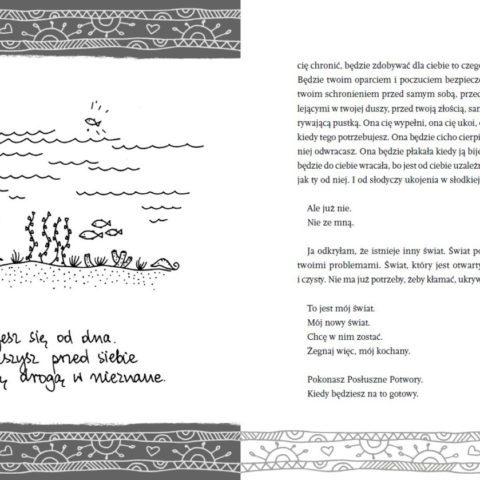 jesz się od dna.
szysz przed siebie
drogą w nieznane.
cię chronić, będzie zdobywać dla ciebie to czego
Będzie twoim oparciem i poczuciem bezpiecze
twoim schronieniem przed samym sobą, przed
lejącymi w twojej duszy, przed twoją złością, sam
rywającą pustką. Ona cię wypełni, ona cię ukoi, o
kiedy tego potrzebujesz. Ona będzie cicho cierpi
niej odwracasz. Ona będzie płakała kiedy ją bije
będzie do ciebie wracała, bo jest od ciebie uzależn
jak ty od niej. I od słodyczy ukojenia w słodkiej
Ale już nie.
Nie ze mną.
Ja odkryłam, że istnieje inny świat. Świat po
twoimi problemami. Świat, który jest otwarty
i czysty. Nie ma już potrzeby, żeby kłamać, ukryw
To jest mój świat.
Mój nowy świat.
Chcę w nim zostać.
Żegnaj więc, mój kochany.
Pokonasz Posłuszne Potwory.
Kiedy będziesz na to gotowy.